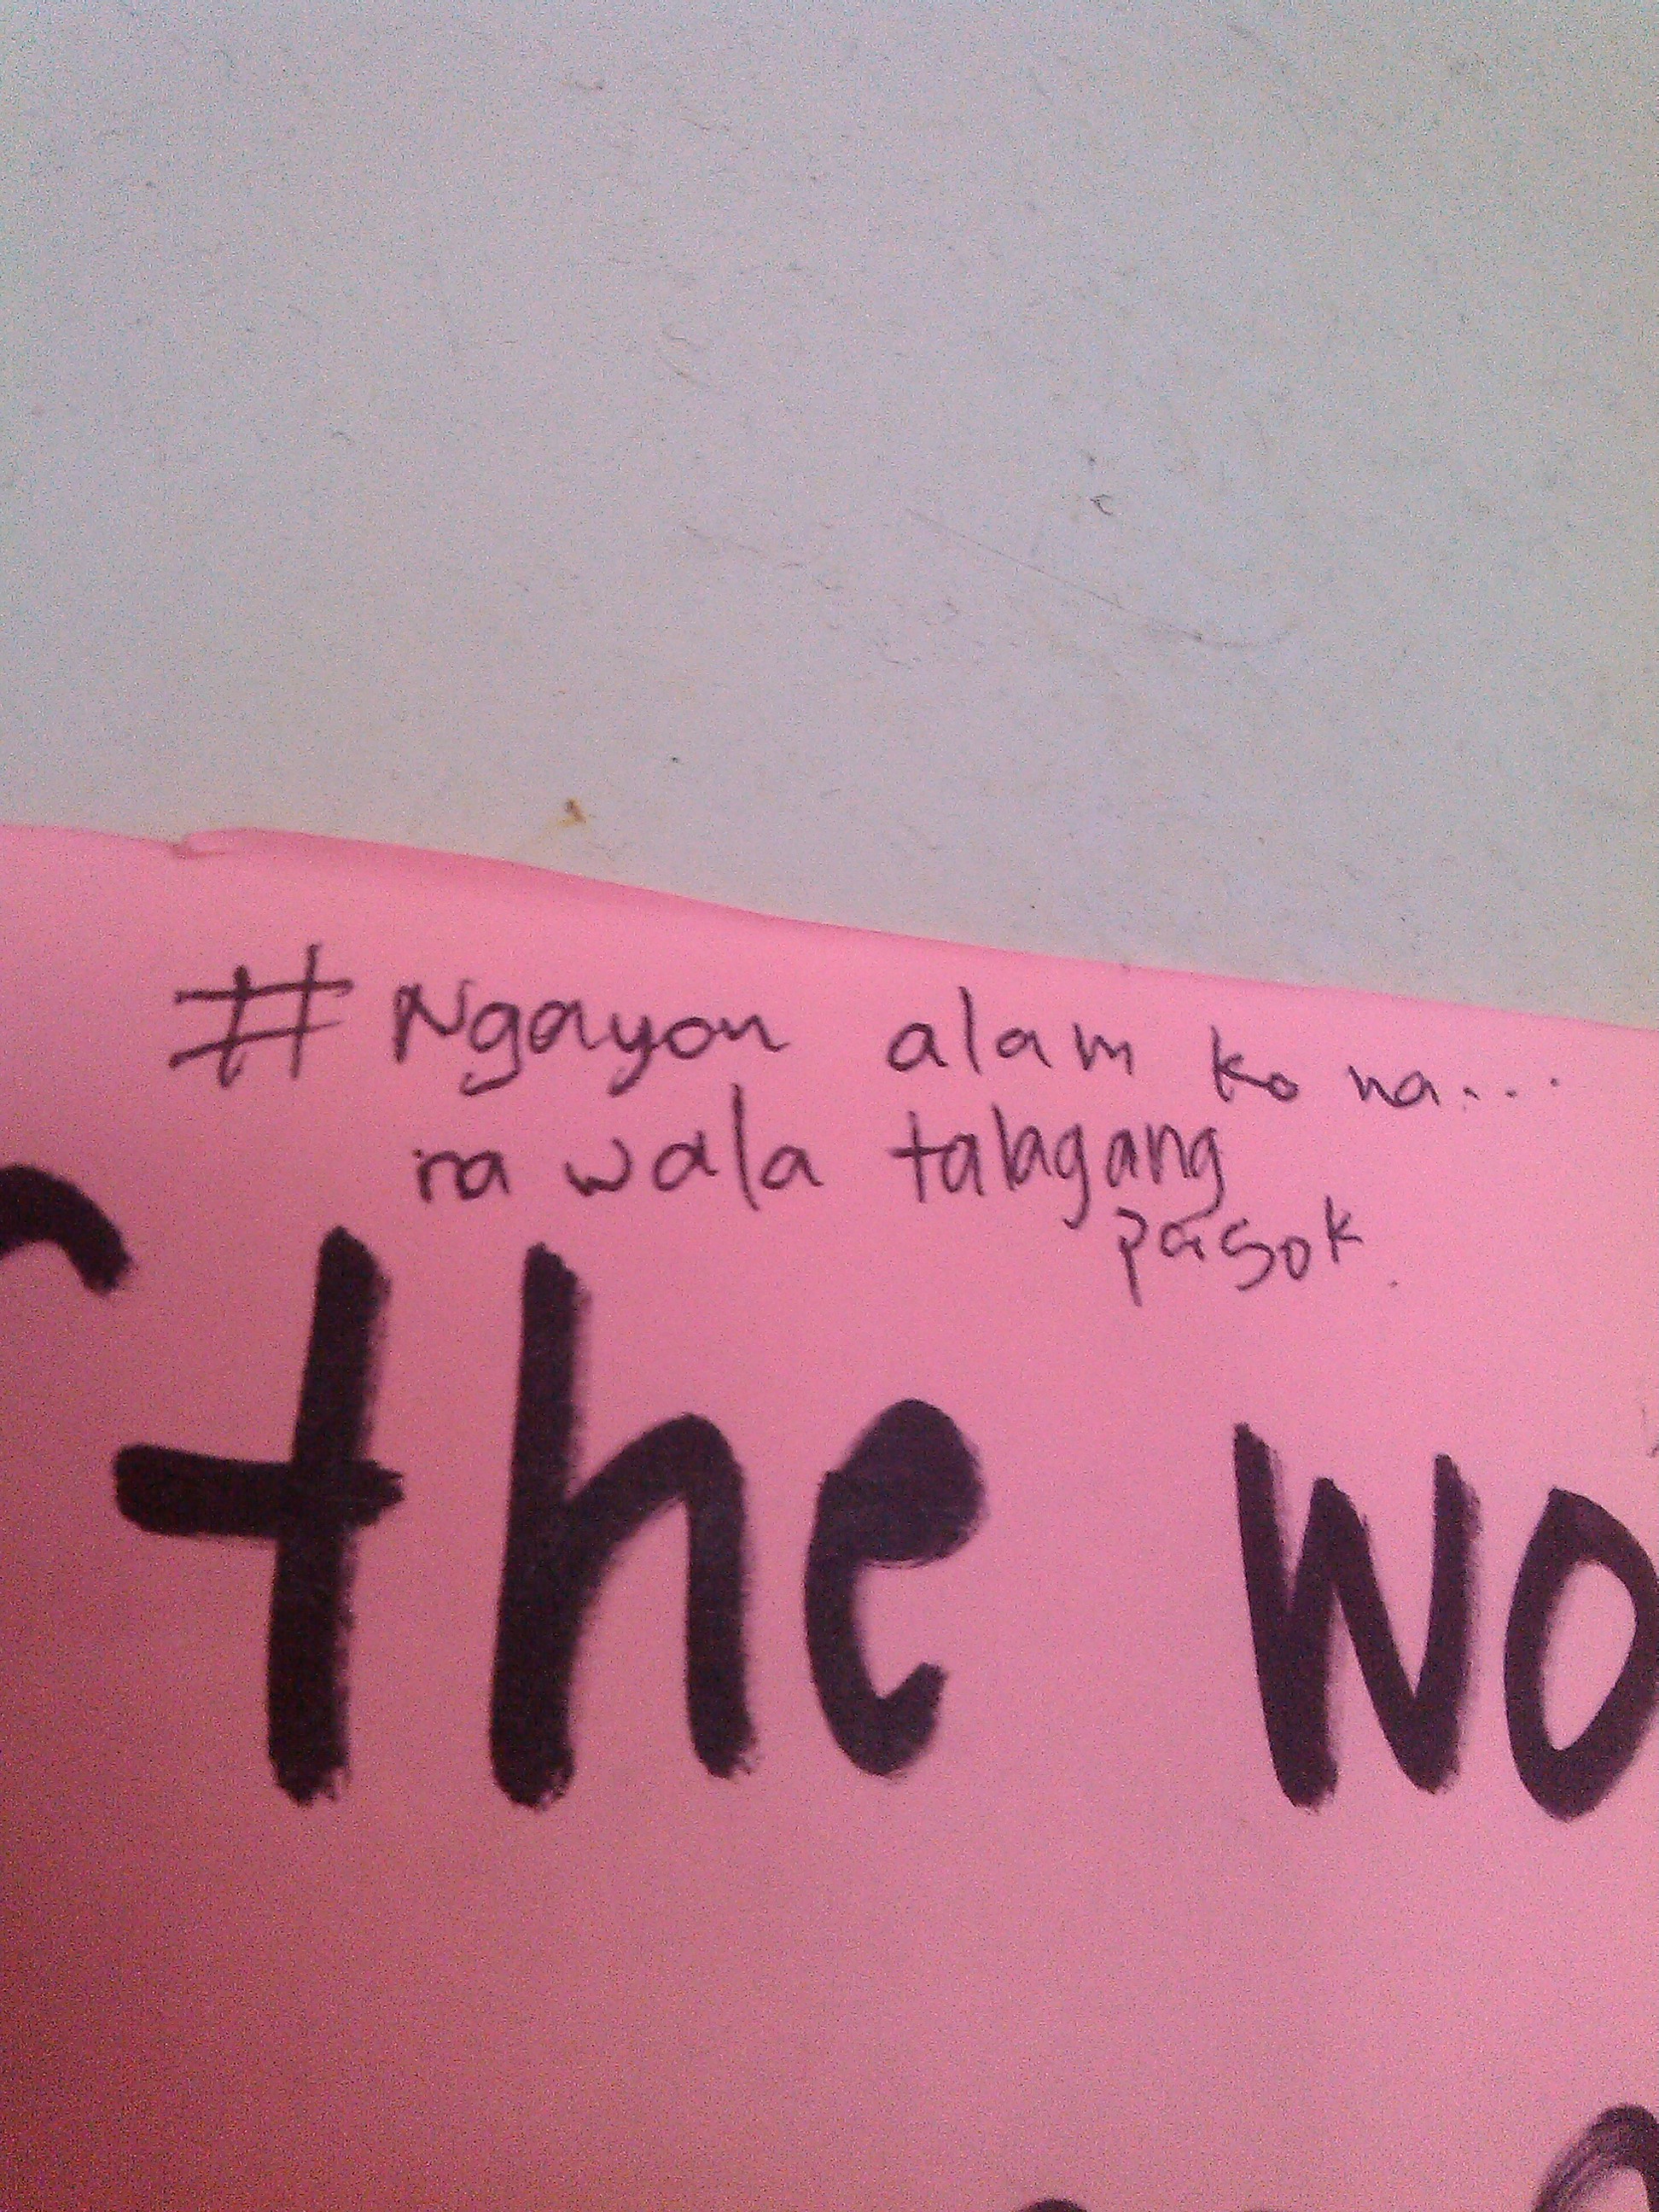 # Ngayon alam ko na...
na wala talagang
pasok
the wo